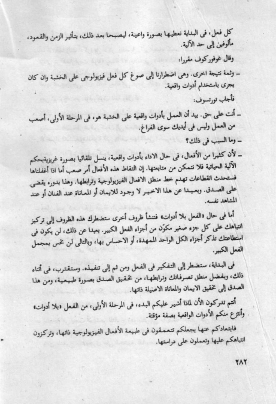 كل فعل، في البداية نعطيها بصورة واعية، ليصبحا بعد ذلك، بتأثير الزمن والتعود،
مألوفين إلى حد الآلية.
وقال غوفوركوف مقرراً:
ـ وثمة نتيجة اخرى. وهي اضطرارنا إلى صوغ كل فعل فيزيولوجي على الخشبة وان كان
يجري باستخدام أدوات واقعية.
فأجاب تورتسوف:
ـ أنت على حق. بيد أن العمل بأدوات واقعية على الخشبة هو، في المرحلة الأولى، أصعب
من العمل وليس في أيديك سوى الفراغ.
ـ وما السبب في ذلك؟
ـ لأن كثيراً من الأفعال، في حال الاداء بأدوات واقعية، ينسل تلقائياً بصورة غريزية بحكم
الآلية الحياتية فلا نتمكن من متابعتها. إن التقاط هذه الأفعال أمر صعب أما اذا أغفلناها
فستحدث انقطاعات تهدم خط منطق الافعال الفيزيولوجية وترابطها. وهذا بدوره يقضي
على الصدق. وبعيداً عن هذا الاخير لا وجود للايمان أو المعاناة عند الفنان أو عند
المشاهد نفسه.
أما في حال «الفعل بلا أدوات» فتنشأ ظروف أخرى ستضطرك هذه الظروف إلى تركيز
انتباهك على كل جزء صغير مكون من أجزاء الفعل الكبير. بعيداً عن ذلك، لن يكون في
استطاعتك تذكر أجزاء الكل الواحد الممهدة، أو الاحساس بها، وبالتالي لن تحس بمجمل
الفعل الكبير.
في البداية، ستضطر إلى التفكير في الفعل ومن ثم إلى تنفيذه. وستقترب، في أثناء
ذلك، وبفضل منطق تصرفاتك وترابطها، من تحقيق الصدق بصورة طبيعية، ومن هذا
الصدق إلى تحقيق الايمان والمعاناة الاصيلة ذاتها.
أنتم تدركون الآن لماذا أشير عليكم البدء، في المرحلة الأولى، من الفعل «بلا أدوات»
وأنتزع منكم الأدوات الواقعية بصفة مؤقتة.
فابتعادكم عنها يجعلكم تتعمقون في طبيعة الأفعال الفيزيولوجية ذاتها، وتركزون
انتباهكم عليها وتعملون على دراستها.
٢٨٢